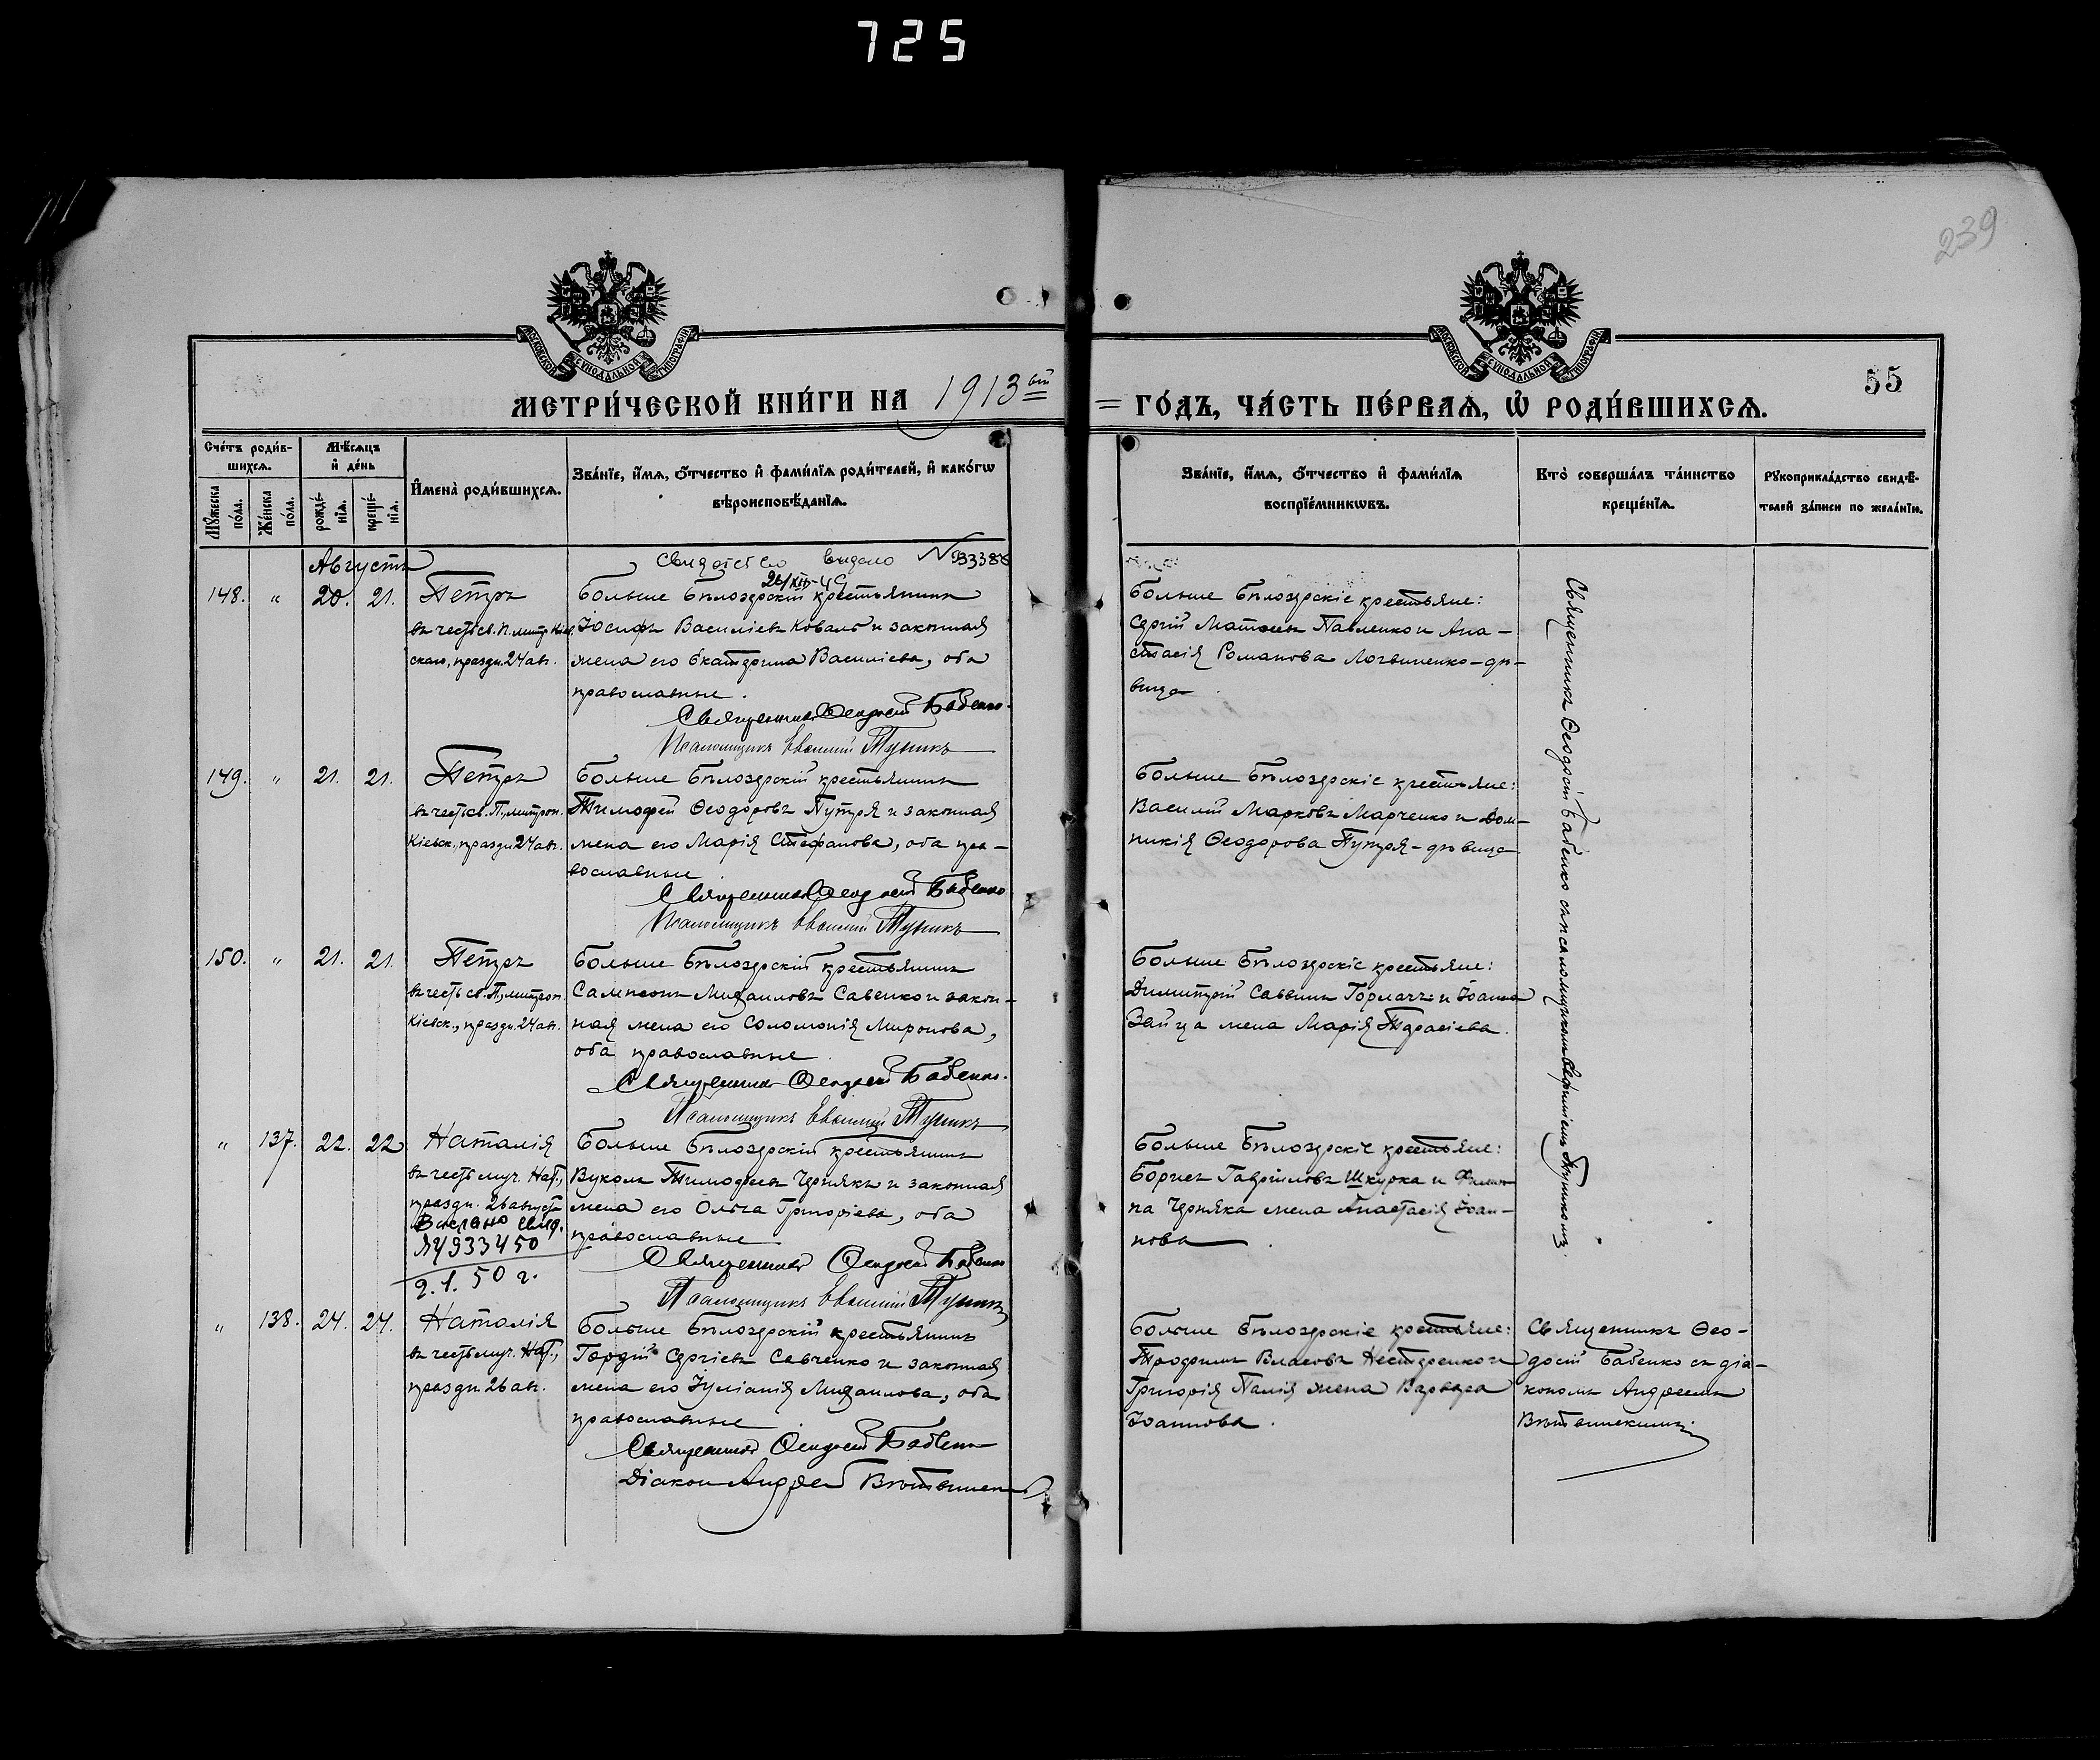 725
239
МОСКОВСКОЙ СѴНОДАЛЬНОЙ ТИПОГРАФІИ
МОСКОВСКОЙ СѴНОДАЛЬНОЙ ТИПОГРАФІИ
55
МЕТРИ́ЧЕСКОЙ КНИ́ГИ НА 1913 ый
= ГО́ДЪ, ЧА́СТЬ ПЕ́РВАѦ, Ѡ҆ РОДИ́ВШИХСѦ.
Сче́тъ роди́в-
шихсѧ.
Мѣ́сѧцъ
и҆ де́нь
И҆мена̀ роди́вшихсѧ.
Зва́нїе, и҆́мѧ, ѻ҆́тчество и҆ фами́лїѧ роди́телей, и҆ како́гѡ
вѣроисповѣ́данїѧ.
Мꙋ́жеска
по́ла.
Же́нска
по́ла.
рожде́-
нїѧ.
креще́-
нїѧ.
Зва́нїе, и҆́мѧ, ѻ҆́тчество и҆ фами́лїѧ
воспрїе́мникѡвъ.
Кто̀ соверша́лъ та́инство
креще́нїѧ.
Рꙋкоприкла́дство свидѣ́-
телей за́писи по жела́нїю.
Августъ
выдано № 933
26/XII-49
148. " 20. 21. Петръ
въ честь св. П. митр. Кіев-
скаго, праздн. 24 авг.
Больше Бѣлозерскій крестьянинъ
Іосифъ Василіевъ Коваль и законная
жена его Екатерина Василіева, оба
православные.
Священникъ Ѳеодосій Бабенко.
Псаломщикъ Евфимій Тупикъ
Больше Бѣлозерскіе крестьяне:
Сергій Матѳеевъ Павленко и Ана-
стасія Романова Логвиненко-дѣ-
вица.
Священникъ Ѳеодосій Бабенко съ псаломщикомъ Евфиміемъ Тупикомъ.
149. " 21. 21. Петръ
въ честь св. П., митроп.
Кіевск., праздн. 24 авг.
Больше Бѣлозерскій крестьянинъ
Тимофей Ѳеодоровъ Путря и законная
жена его Марія Стефанова, оба пра-
вославные
Священникъ Ѳеодосій Бабенко
Псаломщикъ Евфимій Тупикъ
Больше Бѣлозерскіе крестьяне:
Василій Марковъ Марченко и Дом-
никія Ѳеодорова Путря-дѣвица
150. " 21. 21. Петръ
въ честь св. П., митроп.
Кіевск., праздн. 24 авг.
Больше Бѣлозерскій крестьянинъ
Сампсонъ Михаиловъ Савенко и закон-
ная жена его Соломонія Миронова,
оба православные.
Священникъ Ѳеодосій Бабенко.
Псаломщикъ Евфимій Тупикъ
Больше Бѣлозерскіе крестьяне:
Димитрій Саввинъ Горлачъ и Іоанна
Зайца жена Марія Тарасіева.
" 137. 22. 22 Наталія
въ честь муч. Нат.,
праздн. 26 августа
Выслано свид.
ЯЧ 933450
2.1.50 г.
Больше Бѣлозерскій крестьянинъ
Вуколъ Тимофеевъ Чернякъ и законная
жена его Ольга Григоріева, оба
православные
Священникъ Ѳеодосій Бабенко
Псаломщикъ Евфимій Тупикъ
Больше Бѣлозерскіе крестьяне:
Борисъ Гавриловъ Шкурка и Филип-
па Черняка жена Анастасія Іоан-
нова.
" 138. 24. 24. Наталія
въ честь муч. Нат.,
праздн. 26 авг.
Больше Бѣлозерскій крестьянинъ
Гордій Сергіевъ Савченко и законная
жена его Іуліанія Михаилова, оба
православные
Священникъ Ѳеодосій Бабенко
Діаконъ Андрей
Больше Бѣлозерскіе крестьяне:
Трофимъ Власовъ Нестеренко и
Григорія Палія жена Варвара
Іоаннова.
Священникъ Ѳео-
досій Бабенко съ діа-
кономъ Андреемъ